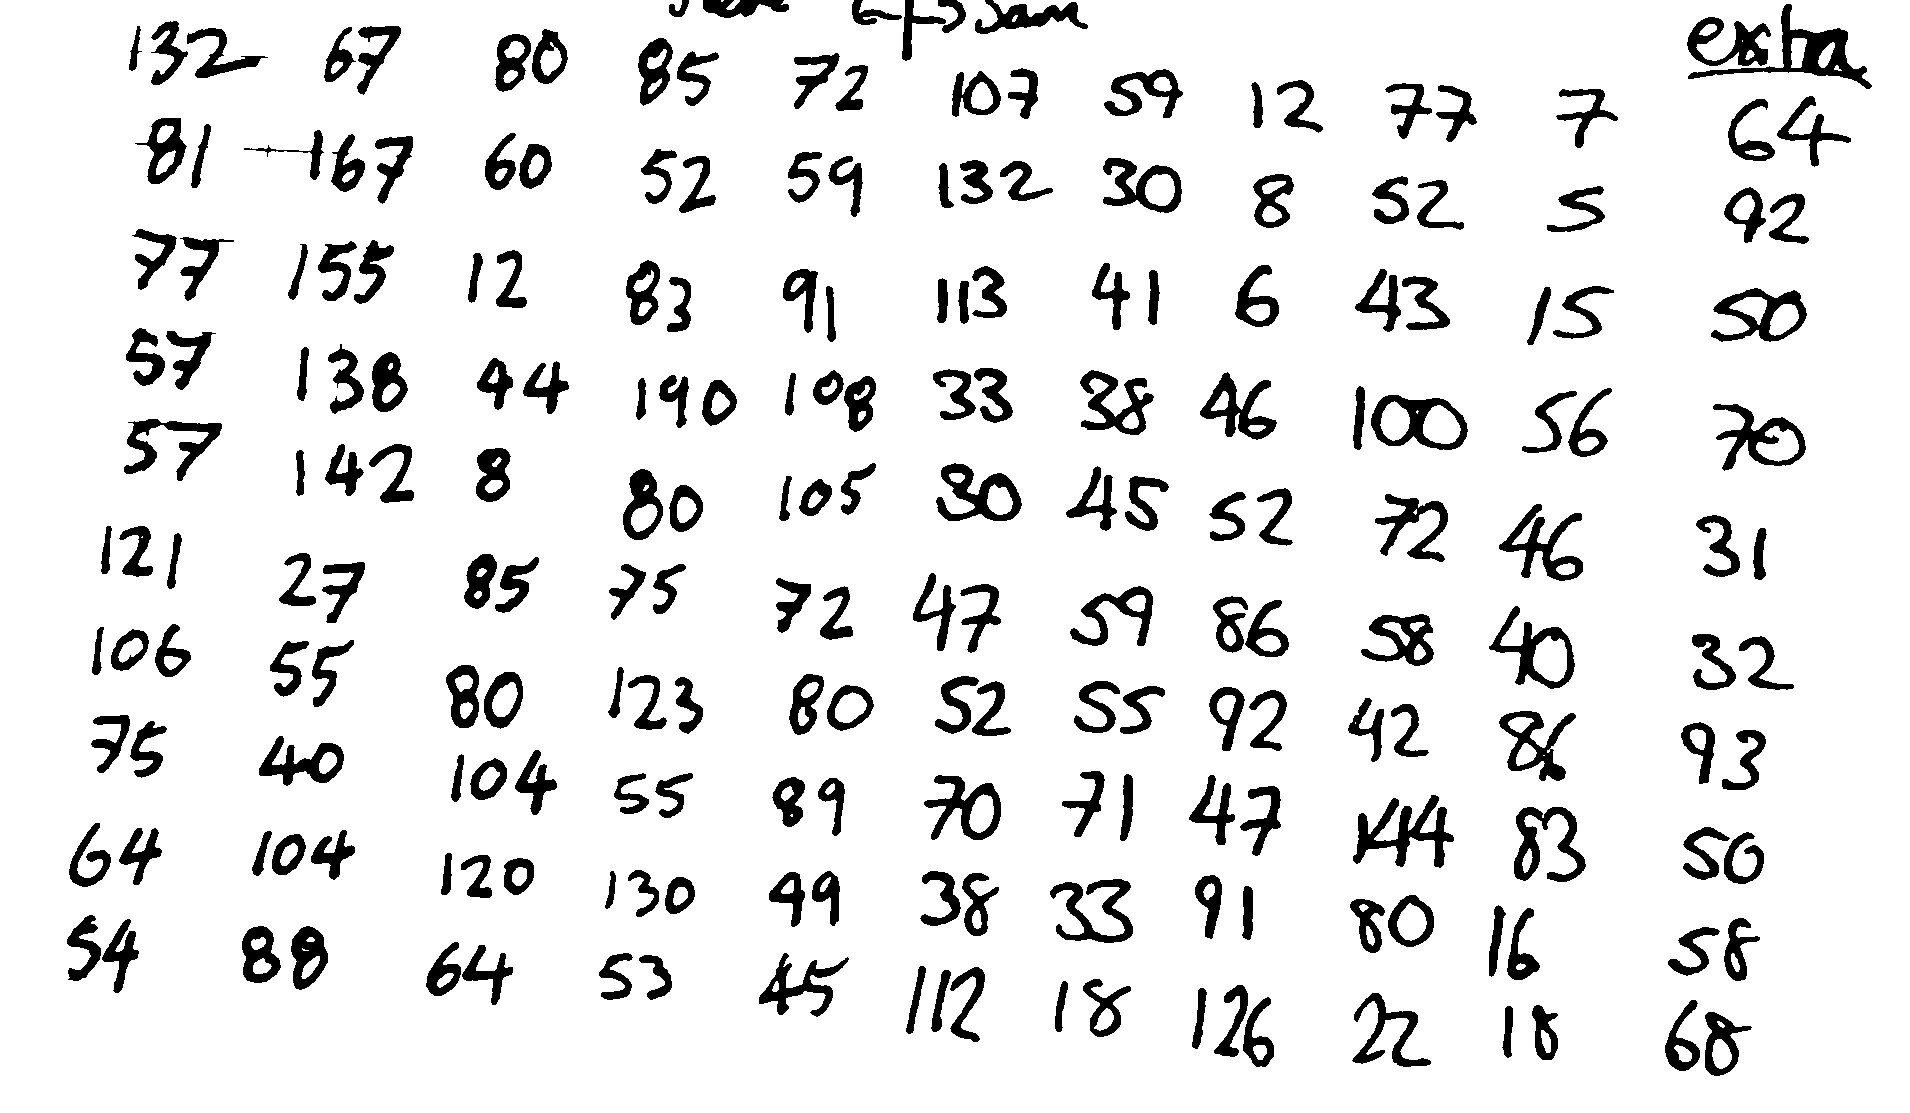 extra
132 67 80 85 72 107 59 12 77 7 64
81 167 60 52 59 132 30 8 52 5 92
77 155 12 83 91 113 41 6 43 15 50
57 138 44 190 108 33 38 46 100 56 70
57 142 8 80 105 30 45 52 72 46 31
121 27 85 75 72 47 59 86 58 40 32
106 55 80 123 80 52 55 92 42 86 93
75 40 104 55 89 70 71 47 144 83 50
64 104 120 130 49 38 33 91 80 16 58
54 88 64 53 45 112 18 126 22 18 68